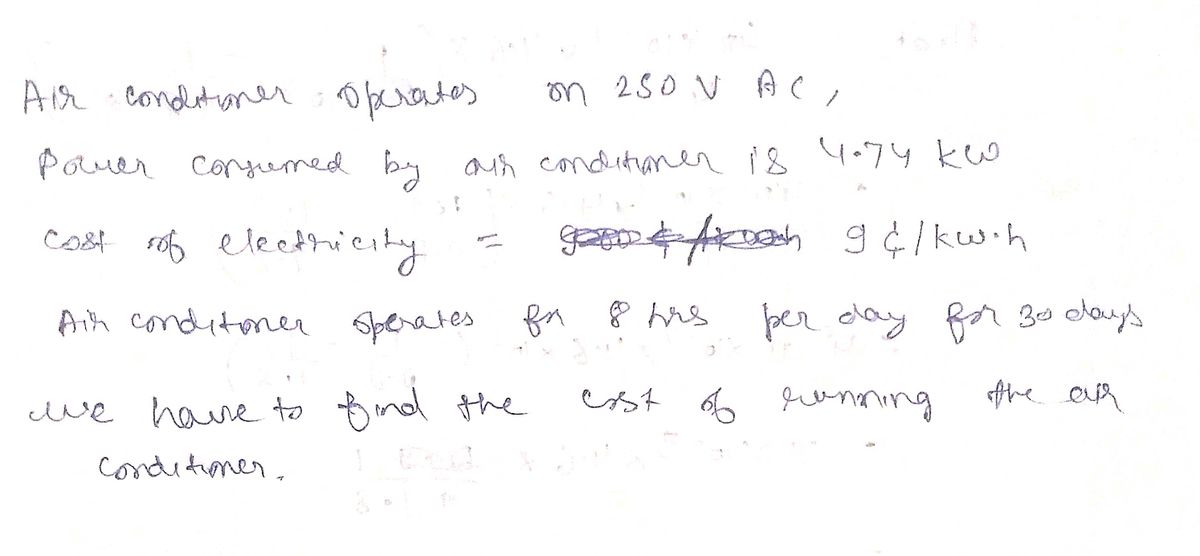 Air conditioner operates on 250 V AC,
Power consumed by air conditioner is 4.74 kw
Cost of electricity = 9 ¢/kw.h
Air conditoner operates for 8 hrs per day for 30 days
we have to find the cost of running the air
conditioner.